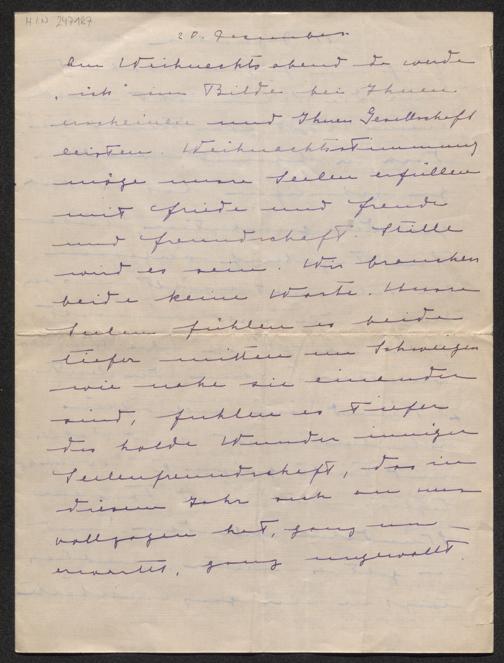 HIN 247187
20. Dezember
Am Weihnachtsabend da werde
"ich" im Bilde bei Ihnen
erscheinen und Ihnen Gesellschaft
leisten. Weihnachtsstimmung
möge unsre Seelen erfüllen
mit Friede und Freude
und Freundschaft. Stille
wird es sein. Wir brauchen
beide keine Worte. Unsre
Seelen fühlen es beide
tiefer mitten im Schweigen
wie nahe sie einander
sind, fühlen es tiefer
das holde Wunder inniger
Seelenfreundschaft, das in
diesem Jahr sich an uns
vollzogen hat, ganz un-
erwartet, ganz ungewollt.